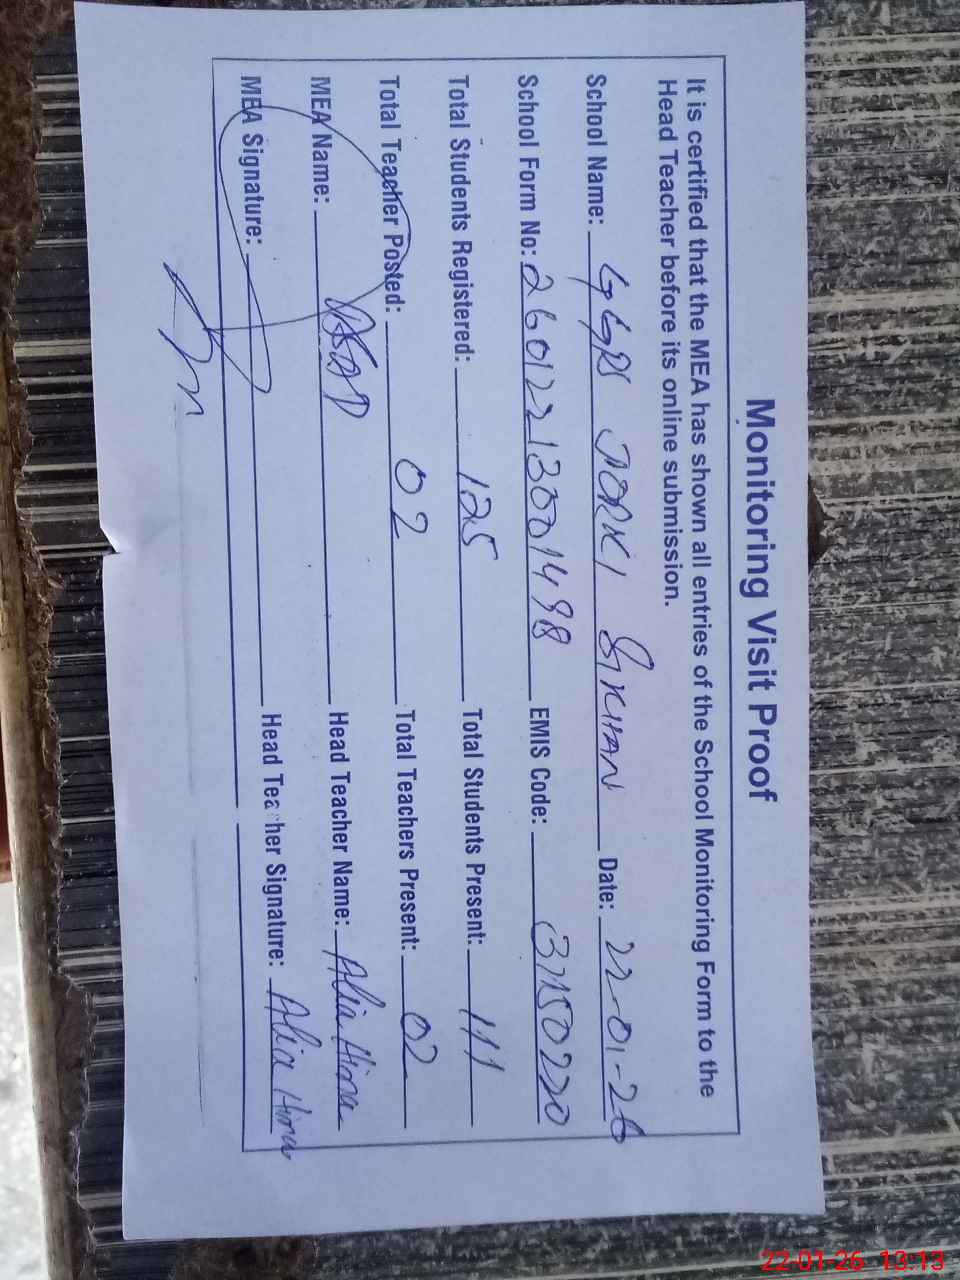 Monitoring Visit Proof
It is certified that the MEA has shown all entries of the School Monitoring Form to the
Head Teacher before its online submission.
School Name: GGPS TORKI SIKHAN Date: 22-01-26
School Form No: 26012213001498 EMIS Code: 37150220
Total Students Registered: 125 Total Students Present: 111
Total Teacher Posted: 02 Total Teachers Present: 02
MEA Name: ASAD Head Teacher Name: Alia Hina
MEA Signature: Head Teacher Signature: Alia Hina
22-01-26 13:13